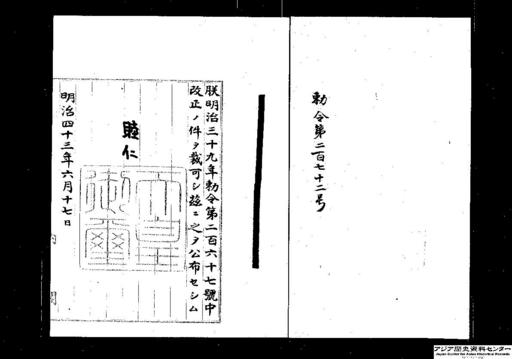 勅令第二百七十二号
朕明治三十九年勅令第二百六十七號中
改正ノ件ヲ裁可シ茲ニ之ヲ公布セシム
睦仁
天皇
御璽
明治四十三年六月十七日
内閣
アジア歴史資料センター
Japan Center for Asian Historical Records